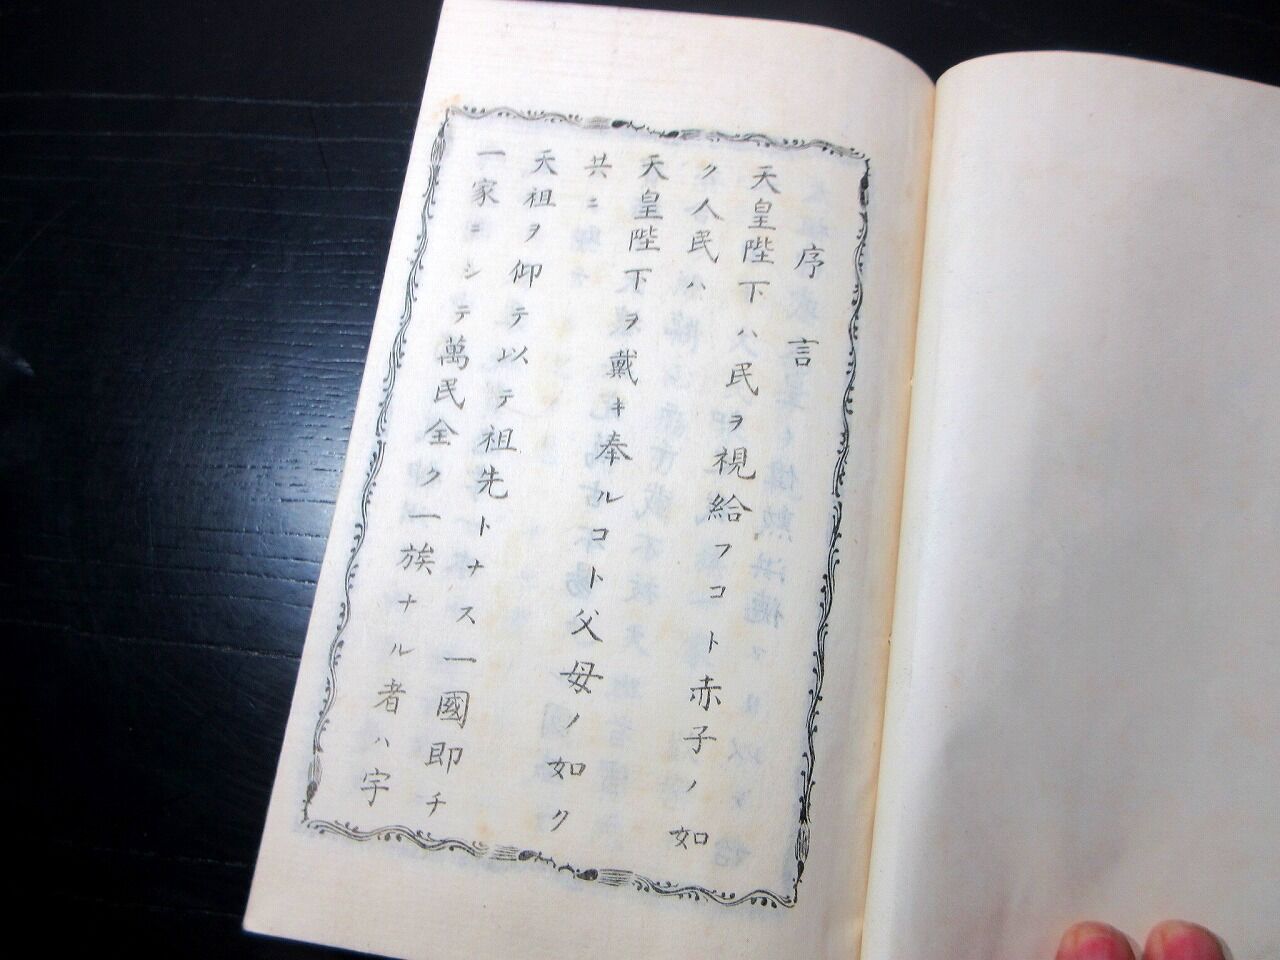 序言
天皇陛下ハ民ヲ視給フコト赤子ノ如
ク人民ハ
天皇陛下ヲ戴キ奉ルコト父母ノ如ク
共ニ
天祖ヲ仰テ以テ祖先トナス一國即チ
一家ニシテ萬民全ク一族ナル者ハ宇